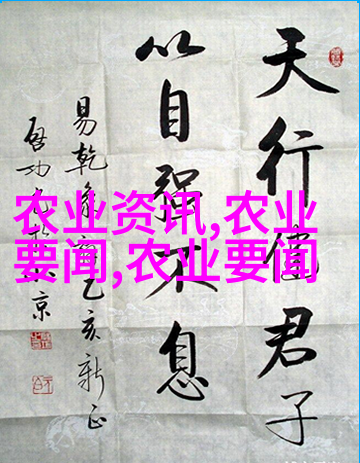 天行健君子
以自强不息
易乾象乙亥新正
啟功京
农业资讯,农业
要闻,农业要闻